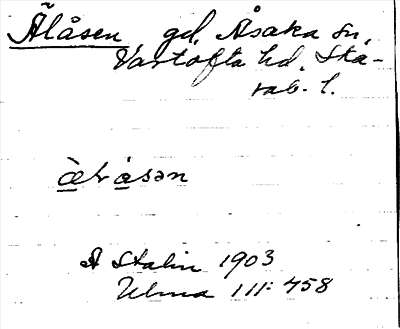 Älåsen gd, Åsaka sn,
Vartofta hd, Ska-
rab. l.
A Stalin 1903
Ulma 111:458